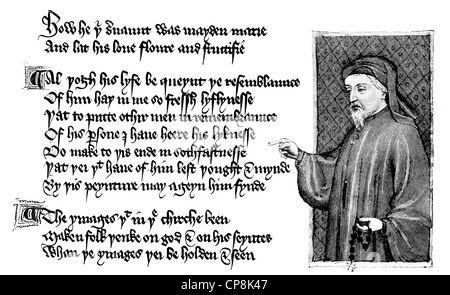 How he yͬ ẜuaunt was mayden marie
And lat his loue floure and fructifie
Al yogh his lyfe be queynt ye resemblaunce
Of him hay in me so fressh lyflynesse
Yat to putte othir men in remembraunce
Of his ꝑsone I haue heere his lyknesse
Do make to yis ende in sothfastnesse
Yat yei yᵗ haue of him left yought & mynde
By yis peynture may ageyn him fynde
The ymages yᵗ in yͤ chirche been
Maken folk yenke on god & on his seyntes
Whan ye ymages yei be holden & seen
alamy
CP8K47
www.alamy.com